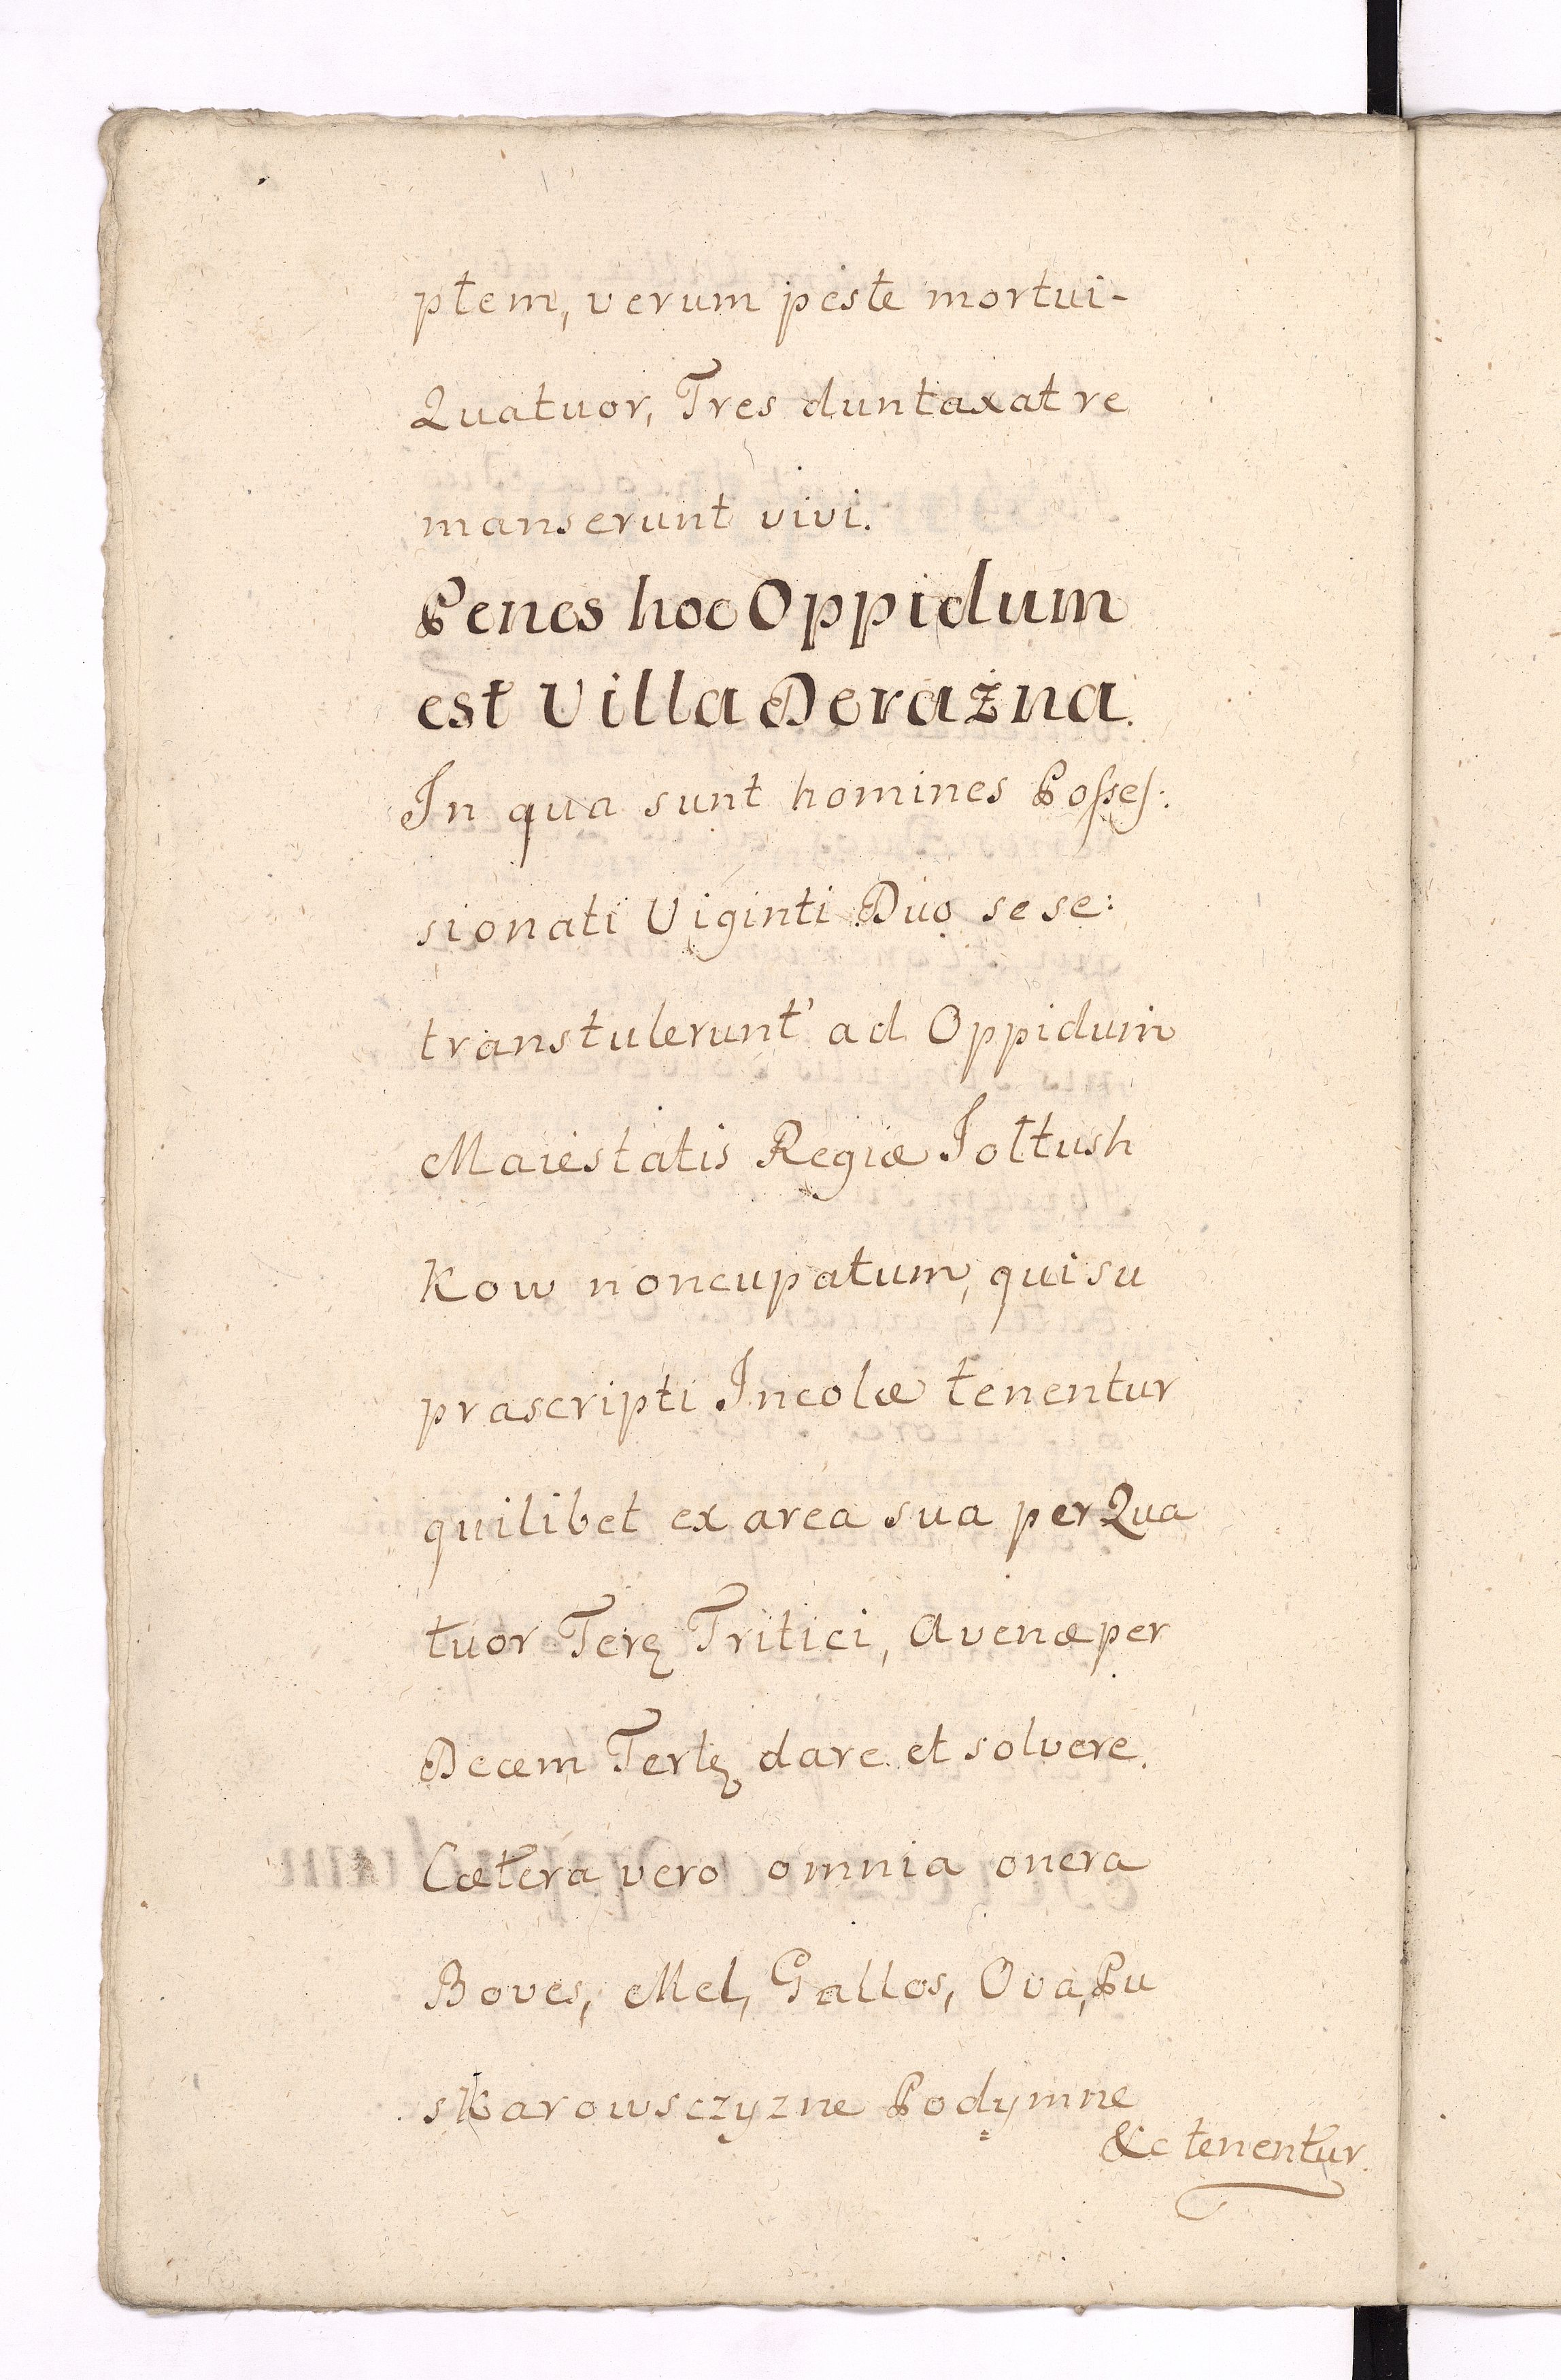 ptem, verum peste mortui-
Quatuor, Tres duntaxat re
manserunt vivi.
Penes hoc Oppidum
est Villa Deraźna.
In qua sunt homines Posses:
sionati Viginti Duo se se:
transtulerunt ad Oppidum
Maiestatis Regiæ Joltush
Kow noncupatum, qui su
prascripti Incolæ tenentur
quilibet ex area sua per Qua
tuor Terę Tritici, Avenæ per
Decem Tertę dare et solvere.
Cætera vero omnia onera
Boves, Mel, Gallos, Ova, Pu
skarowsczyzne Podymne
&c tenentur.